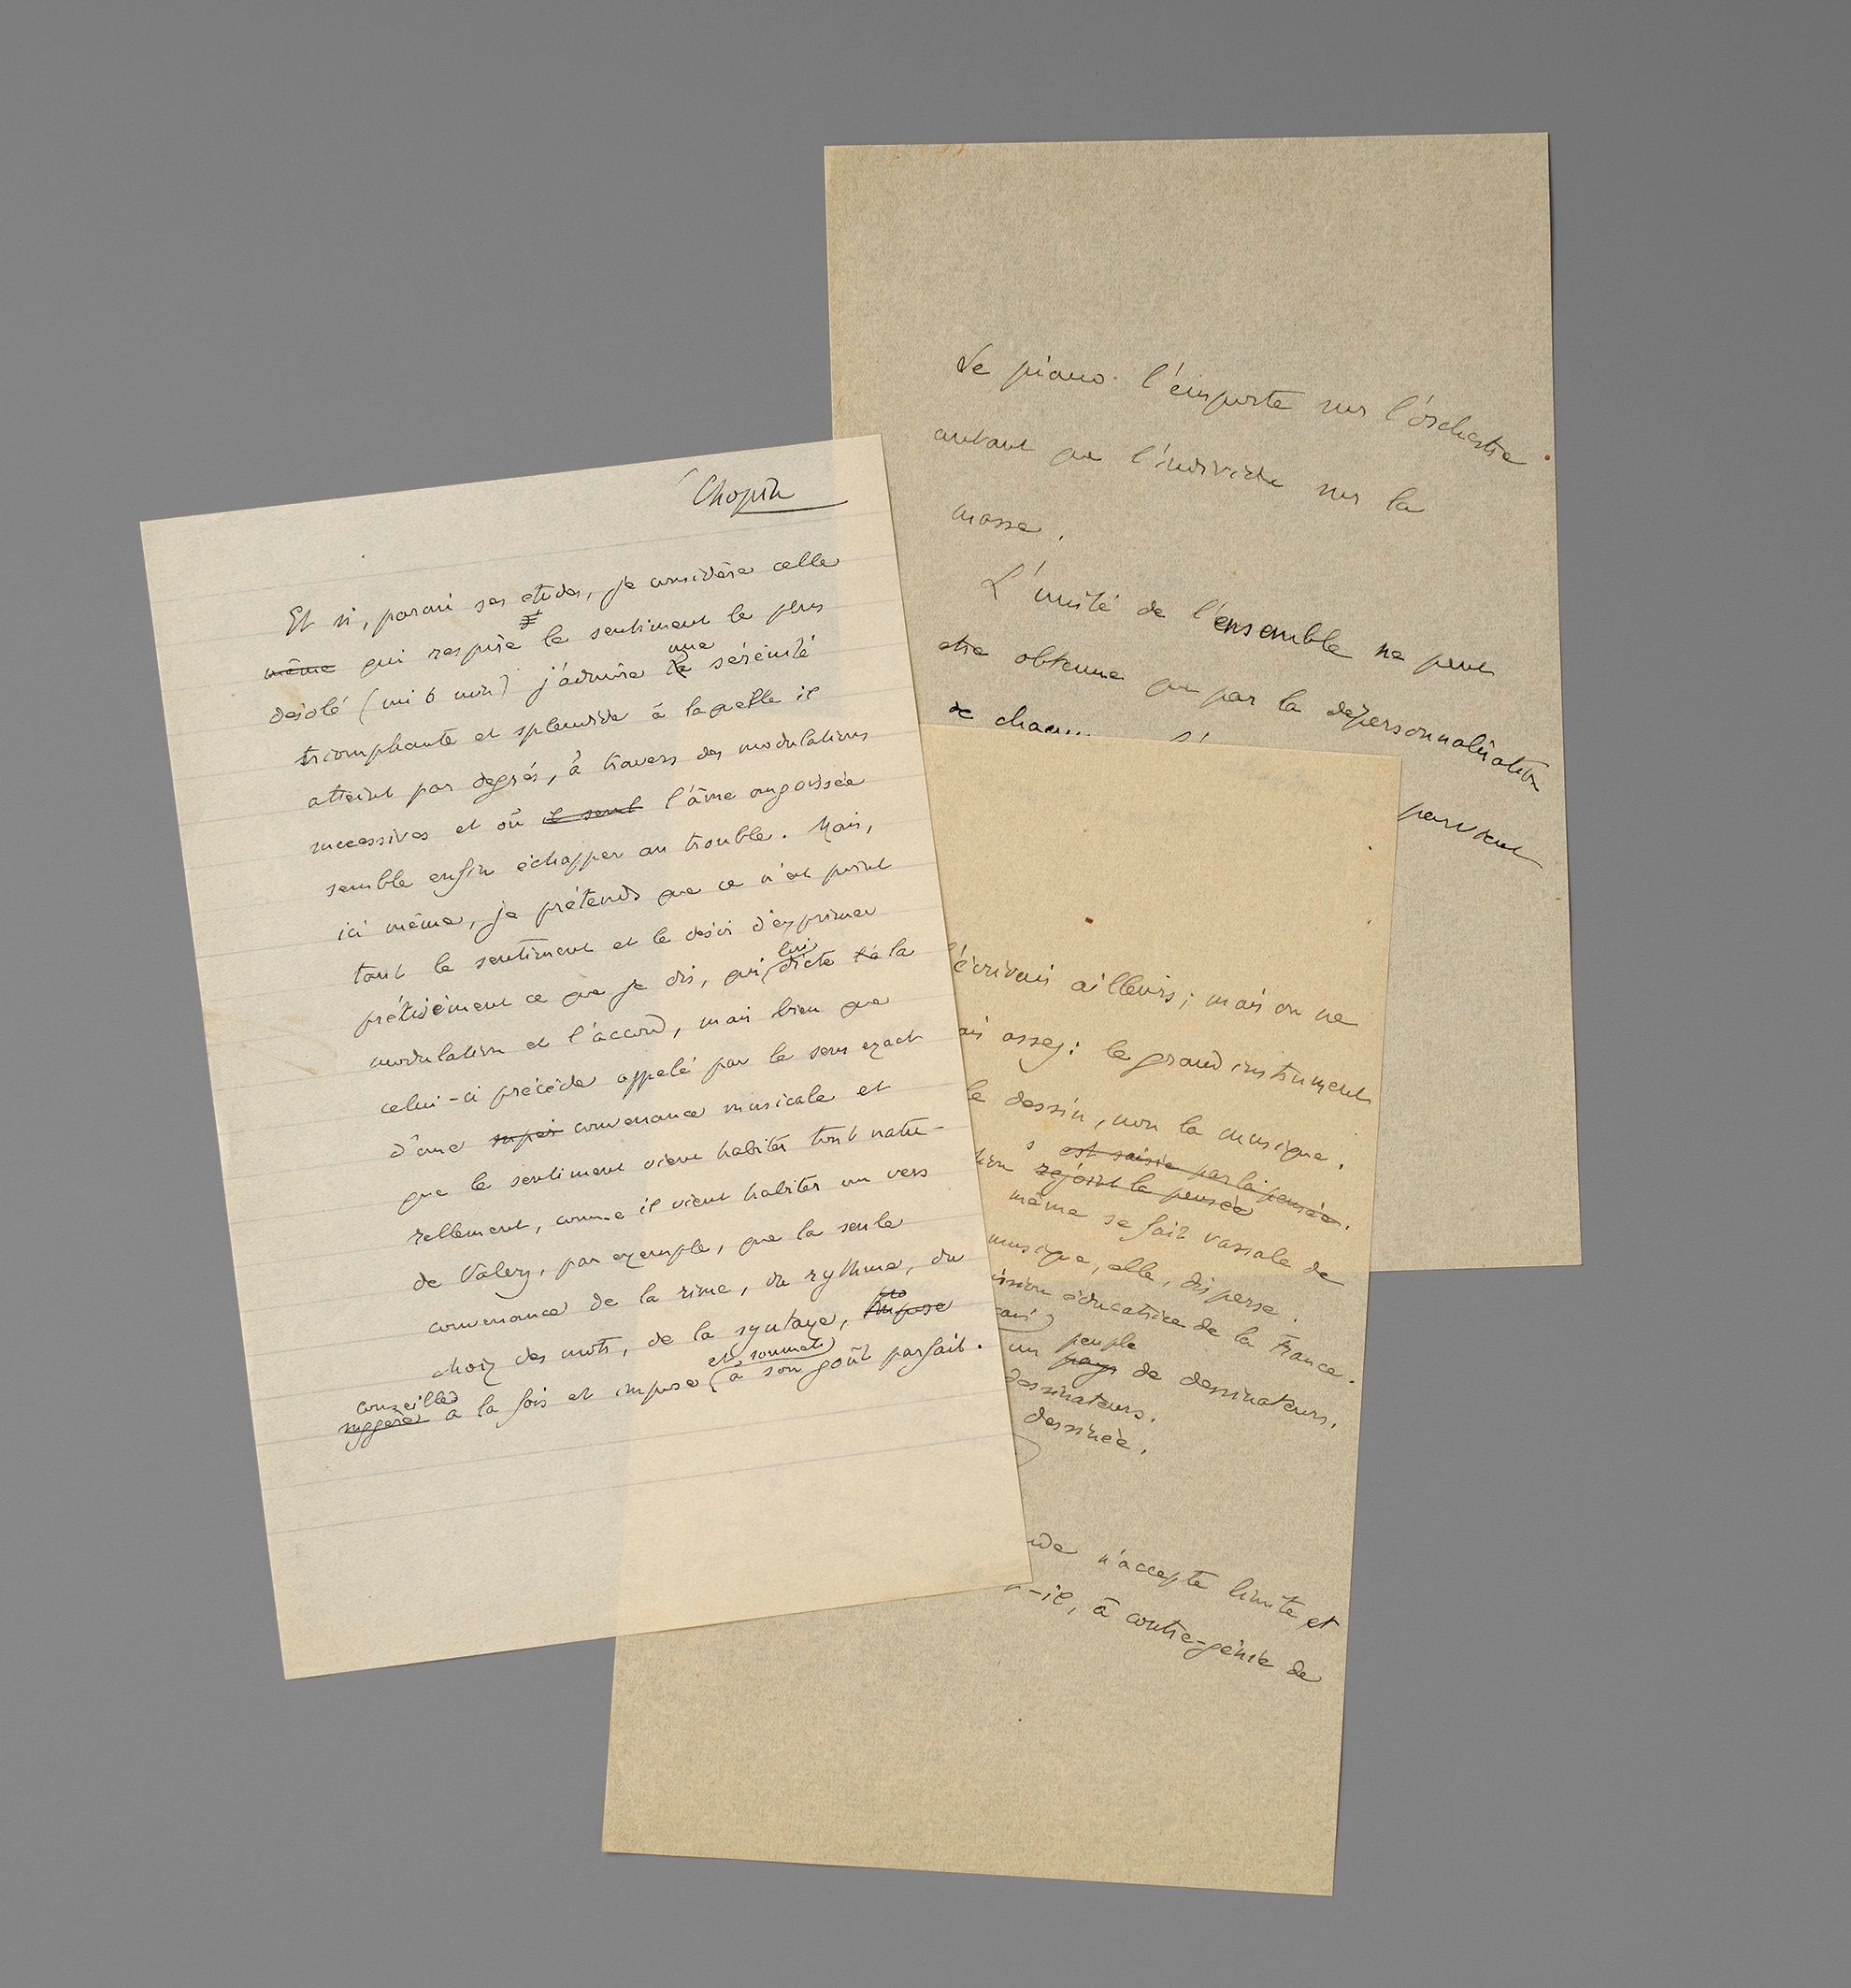 Chopin
Et si, parmi ses études, je considère celle
même qui respire le sentiment le plus
désolé (mi b min) j'admire la une sérénité
triomphante et splendide à laquelle il
atteint par degrés, à travers des modulations
successives et où il semb l'âme angoissée
semble enfin échapper au trouble. Mais,
ici même, je prétends que ce n'est point
tant le sentiment et le désir d'exprimer
précisément ce que je dis, qui lui dicte la
modulation et l'accord, mais bien que
celui-ci précède appelé par le sens exact
d'une convenance musicale et
que le sentiment vient habiter tout natu-
rellement, comme il vient habiter un vers
de Valery, par exemple, que la seule
convenance de la rime, du rythme, du
choix des mots, de la syntaxe, impose
conseille
suggère à la fois et impose et soumet à son goût parfait.
Le piano l'emporte sur l'orchestre
autant que l'individu sur la
masse.
L'unité de l'ensemble ne peut
etre obtenue que par la dépersonnalisation
de chacun
parvient
l'écrivais ailleurs; mais on ne
assez: le grand instrument
le dessin, non la musique.
s est saisie par la pensée.
rejoint la pensée
même se fait vassale de
musique, elle, disperse.
éducatrice de la France.
peuple
un pays de dessinateurs.
dessinateurs.
dessinée.
n'accepte limite et
-il, à contre-génie de